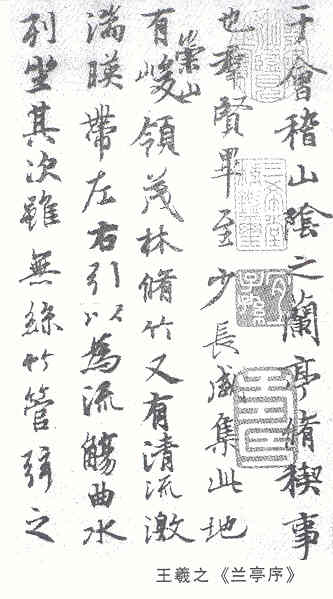 于會稽山陰之蘭亭脩稧事
也羣賢畢至少長咸集此地
有崇山峻領茂林脩竹又有清流激
湍暎帶左右引以為流觴曲水
列坐其次雖無絲竹管弦之
王羲之《兰亭序》